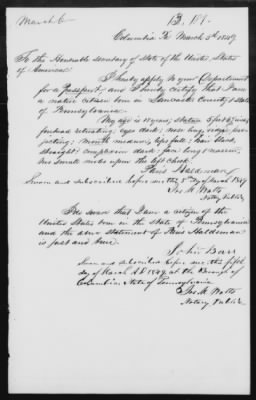 March 6
13,189.
Columbia Pa March 5th 1849
To the Honorable secretary of state of the United States
of America.
I hereby apply to your Department
for a passport; and I hereby certify that I am
a native citizen born in Lancaster County & State
of Pennsylvania.
My age is years; stature 5 feet inches;
forehead retreating; eyes dark; nose long, large, pro-
jecting; mouth medium, lips full; hair black,
straight; complexion dark; face long & narrow.
Two small moles upon the left cheek.
Haldeman
Sworn and subscribed before me the 5th day of March 1849
Jas. H. Watts
Notary Public
I do swear that I am a citizen of the
United States born in the State of Pennsylvania
and the above statement of Haldeman
is just and true.
John Barr
Sworn and subscribed before me this fifth
day of March A.D. 1849, at the Borough of
Columbia State of Pennsylvania
Jas. H. Watts
Notary Public